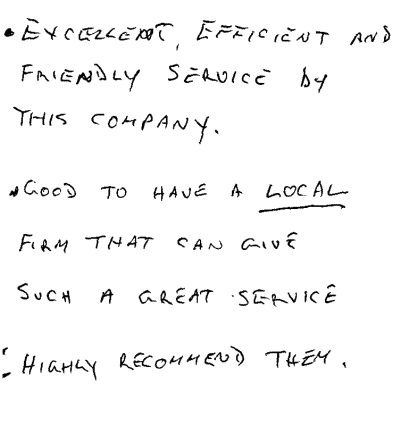 • EXCELLENT, EFFICIENT AND
FRIENDLY SERVICE BY
THIS COMPANY.
• GOOD TO HAVE A LOCAL
FIRM THAT CAN GIVE
SUCH A GREAT SERVICE
: HIGHLY RECOMMEND THEM.